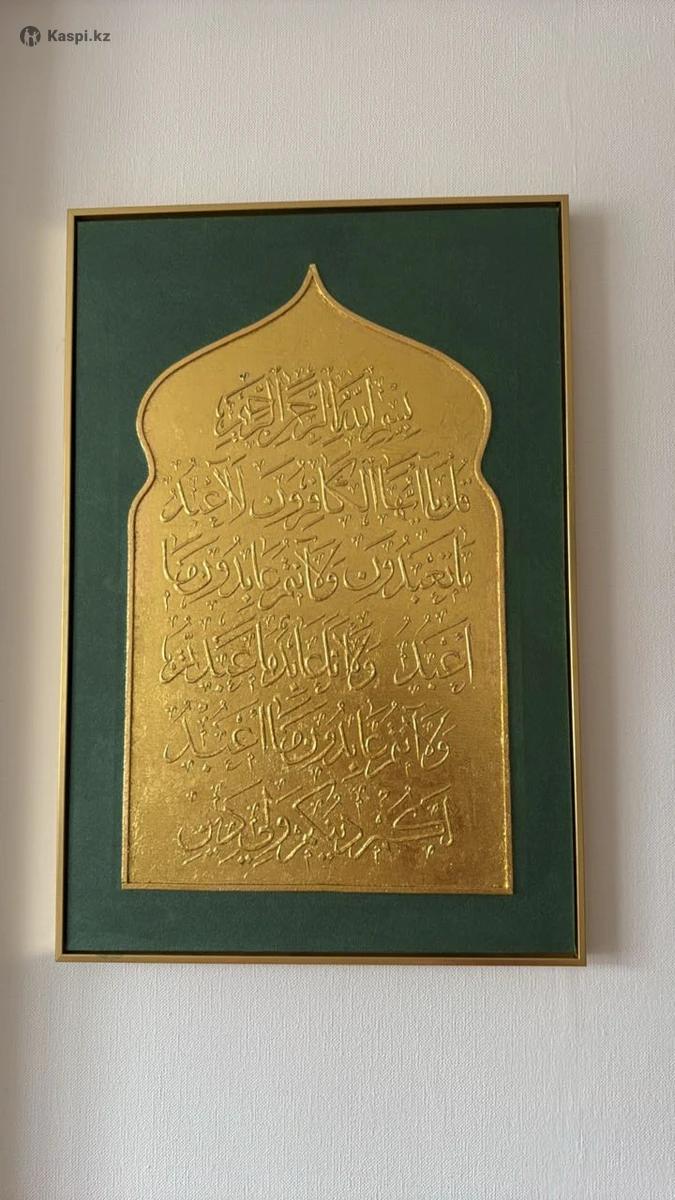 Kaspi.kz
بسم الله الرحمن الرحيم
قل يا أيها الكافرون لا أعبد
ما تعبدون ولا أنتم عابدون ما
أعبد ولا أنا عابد ما عبدتم
ولا أنتم عابدون ما أعبد
لكم دينكم ولي دين